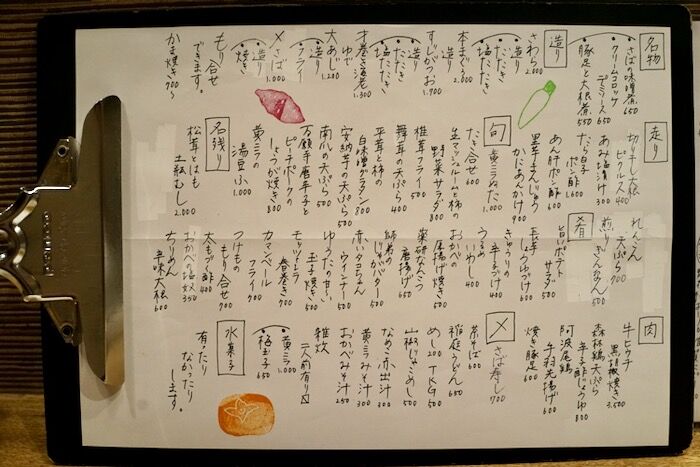 名物
さばの味噌煮 650
クリームコロッケ
デミソース 650
豚足と大根煮 550
造り
さわら 2,000
造り
たたき
塩たたき
本まぐろ 2,000
造り
すじがつお 1,700
たたき
塩たたき
才巻き海老 1,300
造り
ゆで
大あじ 1,200
造り
フライ
〆さば 1,000
造り
焼き
もり合せ
できます。
かま焼き 700〜
走り
切り干し大根
ピクルス 400
あみ塩漬け 300
たら白子
ポン酢 1,600
あん肝ポン酢 600
里芋まんじゅう
かにあんかけ 900
旬
黄ニラぬた 1,000
たき合せ 600
生マッシュルームと柿の
野菜サラダ 800
椎茸フライ 500
舞茸の天ぷら 400
平茸と柿の
白味噌グラタン 800
安納芋の天ぷら 500
南瓜の天ぷら 500
万願寺唐辛子と
ピーチポークの
しょうが焼き 800
黄ニラの
湯豆ふ 1,000
名残り
松茸とはも
土瓶むし 2,000
れんこん
天ぷら 700
煎りぎんなん 500
肴
旨いポテト
サダラ 500
長芋
しょうゆ漬け 600
きゅうりの
辛子漬け 400
うるめ
いわし 400
おかべの
厚揚げ焼き 500
薬研なんこつ
唐揚げ 650
姉弟の
じゃがバター 500
赤いタコちゃん
ウィンナー 500
ゆうたの甘い
玉子焼き 500
モッツァレラ
春巻き 700
カマンベール
フライ 700
つけもの
もり合せ 700
太もづく酢 400
おかべの塩奴 350
ちりめん
辛味大根 600
肉
牛ヒウチ
黒胡椒焼き 3,500
森林鶏天ぷら
辛子酢じょうゆ 800
阿波尾鶏
手羽先揚げ 600
焼き豚足 600
〆
さば寿し 700
茶そば 600
稲庭うどん 650
めし 200 TKG 500
山椒じゃこめし 500
なめこ赤出汁 300
黄ニラみそ汁 300
おっかべみそ汁 250
雑炊
二人前有り
黄ニラ 1,000
梅玉子 650
水菓子
有ったり
なかったり
します。